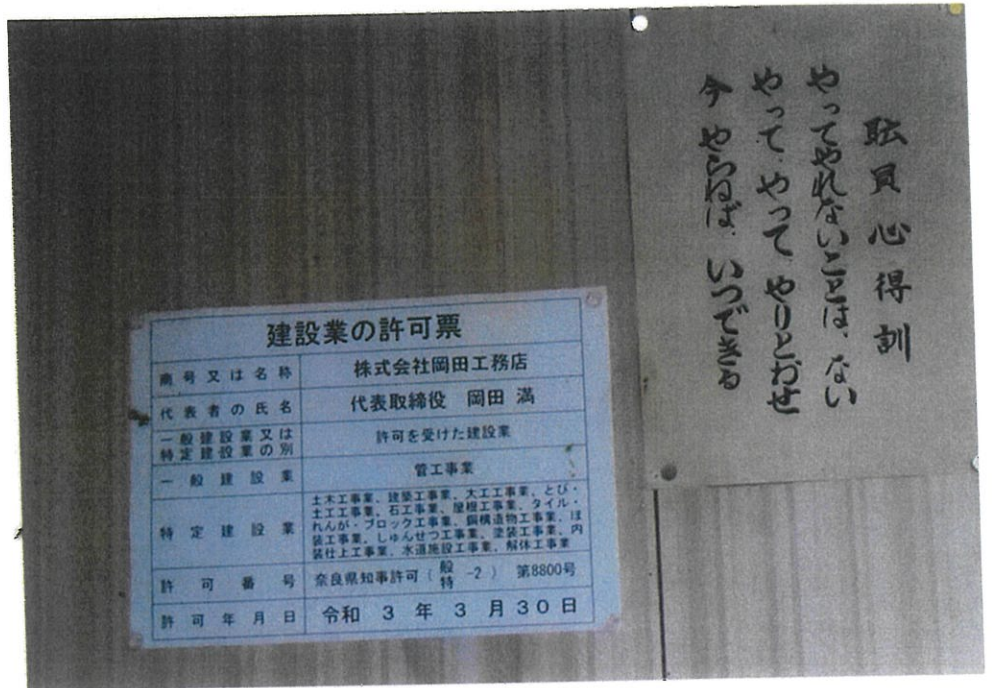 職員心得訓
やってやれないことは、ない
やって、やって、やりとおせ
今 やらねば、いつできる
建設業の許可票
商号又は名称 株式会社岡田工務店
代表者の氏名 代表取締役 岡田 満
一般建設業又は
特定建設業の別 許可を受けた建設業
一般建設業 管工事業
特定建設業 土木工事業、建築工事業、大工工事業、とび・
土工工事業、石工事業、屋根工事業、タイル・
れんが・ブロック工事業、鋼構造物工事業、ほ
装工事業、しゅんせつ工事業、塗装工事業、内
装仕上工事業、水道施設工事業、解体工事業
許可番号 奈良県知事許可(般特-2) 第8800号
許可年月日 令和 3 年 3 月 30 日